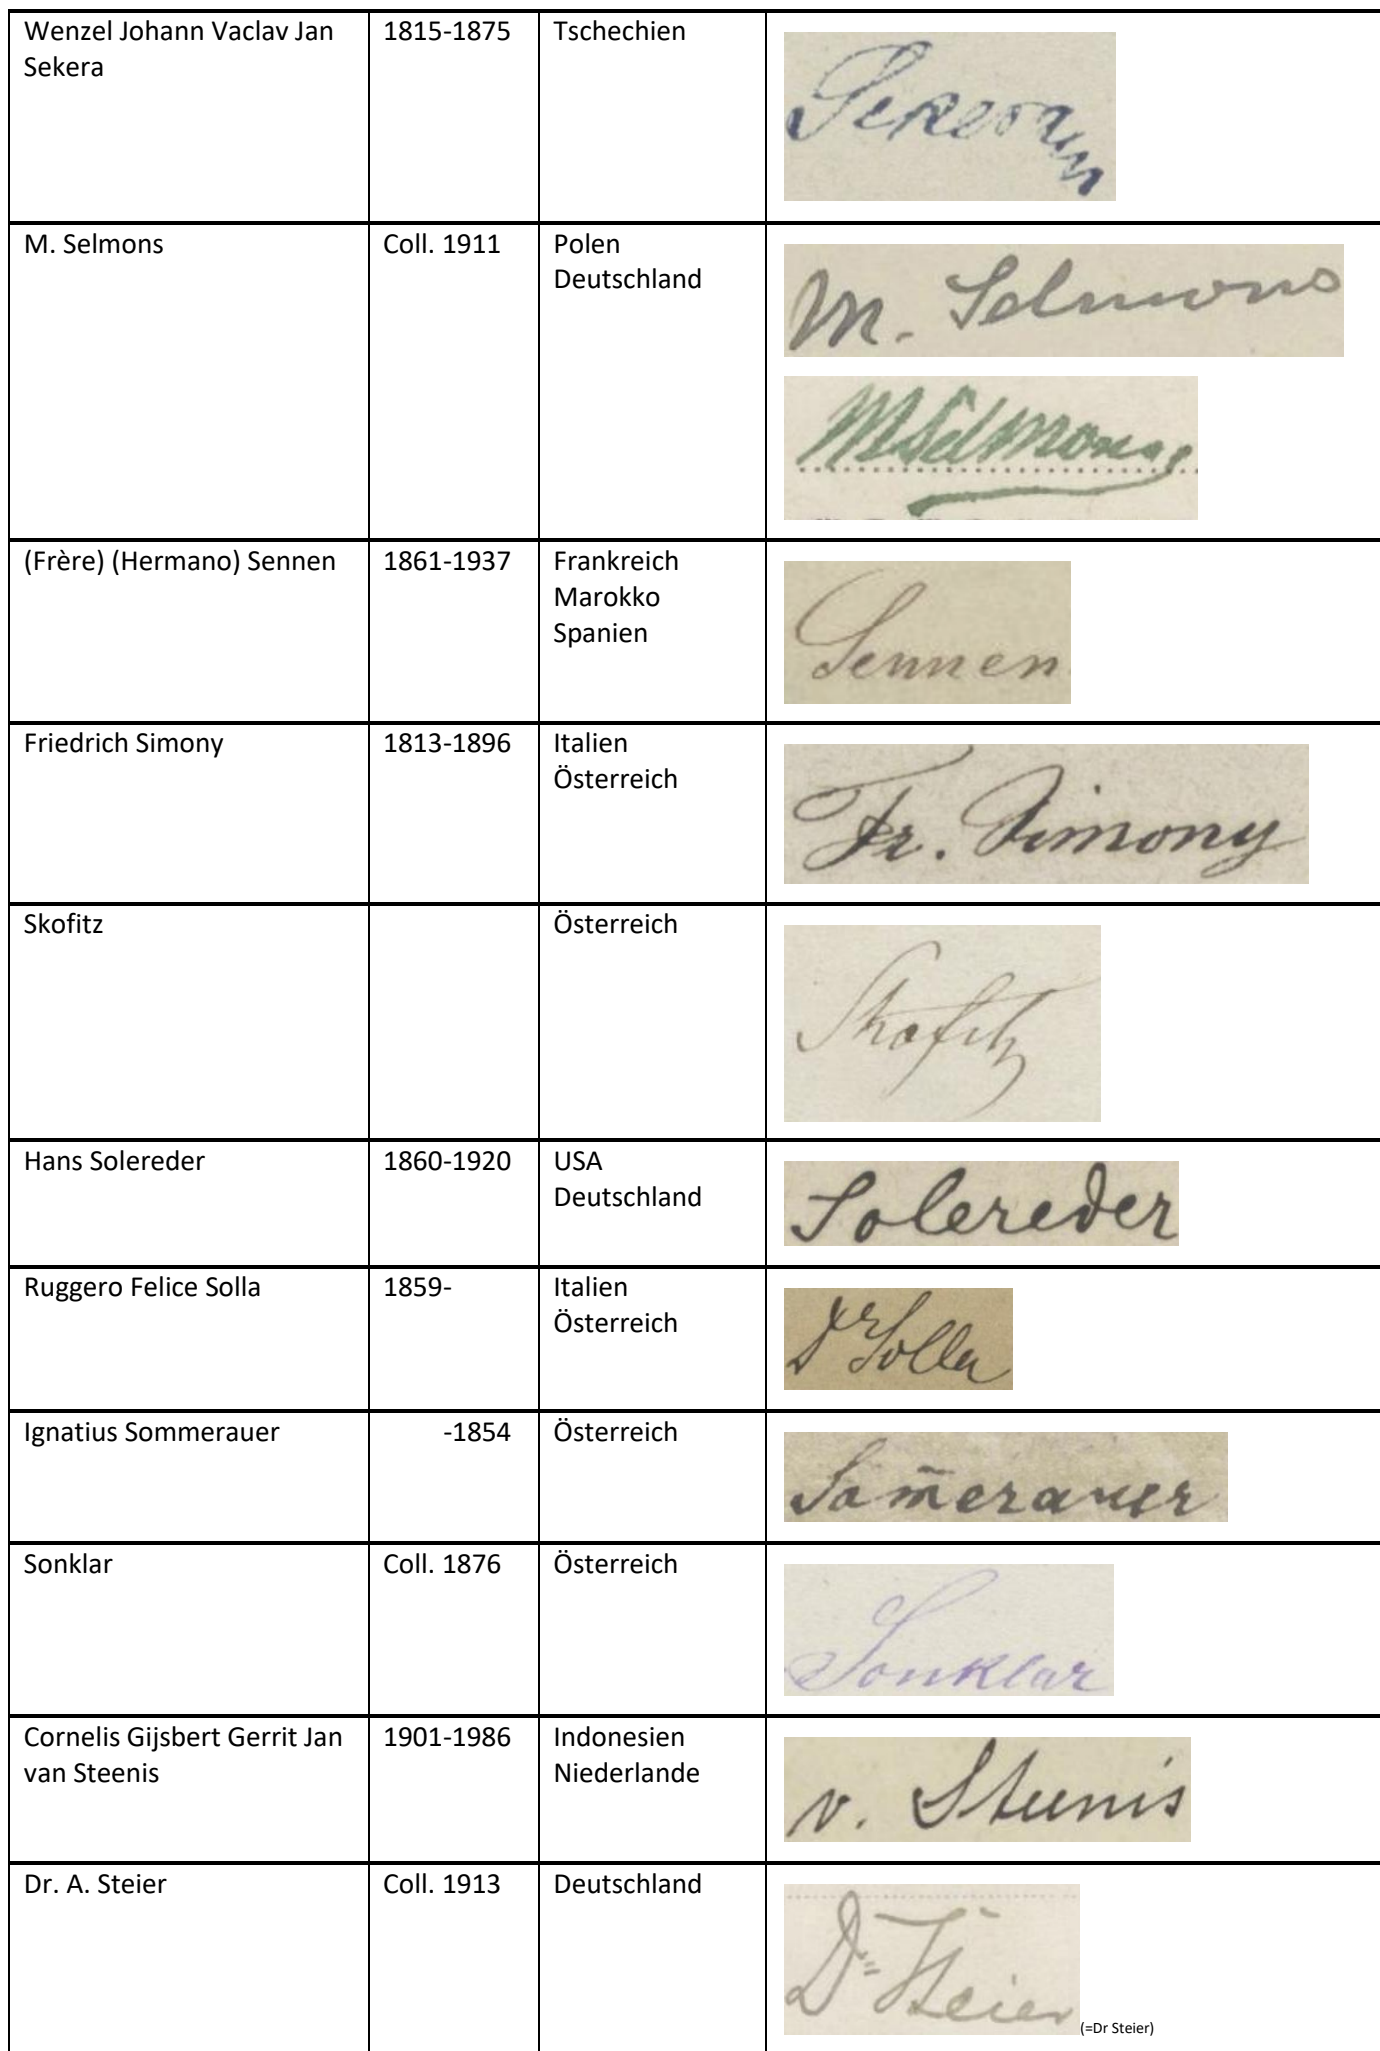 Wenzel Johann Vaclav Jan
Sekera
1815-1875
Tschechien
Sekera
M. Selmons
Coll. 1911
Polen
Deutschland
M. Selmons
MSelmons
(Frère) (Hermano) Sennen
1861-1937
Frankreich
Marokko
Spanien
Sennen
Friedrich Simony
1813-1896
Italien
Österreich
Fr. Simony
Skofitz
Österreich
Skofitz
Hans Solereder
1860-1920
USA
Deutschland
Solereder
Ruggero Felice Solla
1859-
Italien
Österreich
Dr Solla
Ignatius Sommerauer
-1854
Österreich
Som̅erauer
Sonklar
Coll. 1876
Österreich
Sonklar
Cornelis Gijsbert Gerrit Jan
van Steenis
1901-1986
Indonesien
Niederlande
v. Steenis
Dr. A. Steier
Coll. 1913
Deutschland
Dr Steier
(=Dr Steier)